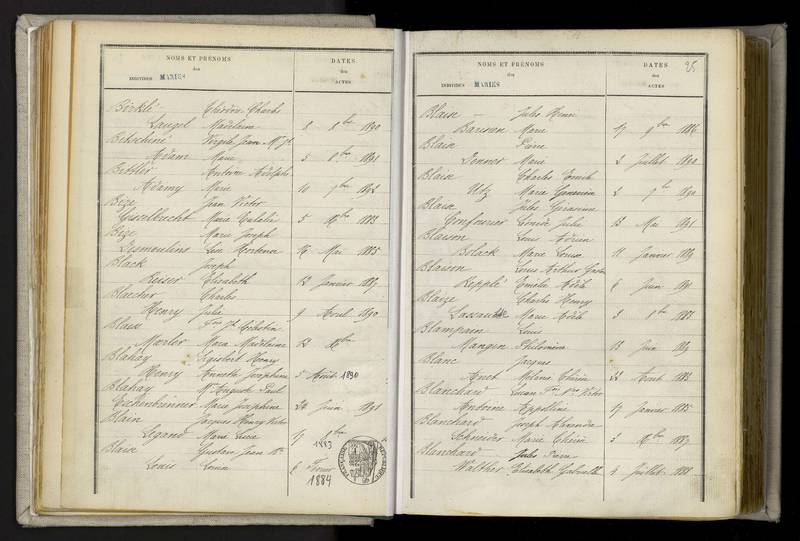 NOMS ET PRÉNOMS
des
INDIVIDUS MARIÉS
DATES
des
ACTES
Birklé Théodore Charles
Laugel Madeleine 8 8bre 1890
Betschené Virgile Jean
Adam Marie 5 8bre 1891
Bettler Antoine Adolphe
Adamy Marie 10 7bre 1892
Bize Jean Victor
Marie Eulalie 5 1883
Bize Marie Joseph
Desmoulins Léa Hortense 16 Mai 1885
Black Joseph
Reiser Elisabeth 12 Janvier 1887
Blaecher Charles
Henry Julie 9 Avril 1890
Blaess
Marie Madeleine
Blahay Sigisbert Henry
Henry Annette Joséphine 5 Août 1890
Blahay Auguste Paul
Eschenbrenner Marie Joséphine 24 Juin 1891
Blain Jacques Henry Victor
Legand Marie Lucie 17 1883
Blain Gustave Jean
Louis Louise 6 Février 1884
NOMS ET PRÉNOMS
des
INDIVIDUS MARIÉS
DATES
des
ACTES
25
Blain Jules Henri
Marie 17 9bre 1886
Blain Pierre
Lenner Marie 2 Juillet 1890
Blain Charles Emile
Utz Marie Geneviève 2 7bre 1890
Blain Jules
Louise Julie 13 Mai 1891
Blaison Louis Adrien
Bolack Marie Louise 11 Janvier 1889
Blaison Louis Arthur
Kepplé Emilie Adèle 6 Juin 1891
Blaize Charles Henry
Marie Adèle 3 8bre 1888
Blampain Louis
Mangin Philomène 13 Juin 1889
Blanc Jacques
Anet 22 Août 1883
Blanchard
Antoine Appoline 17 Janvier 1885
Blanchard Joseph
Schneider Marie 3 1887
Blanchard Jules Pierre
Walther Elisabeth Gabrielle 4 Juillet 1888